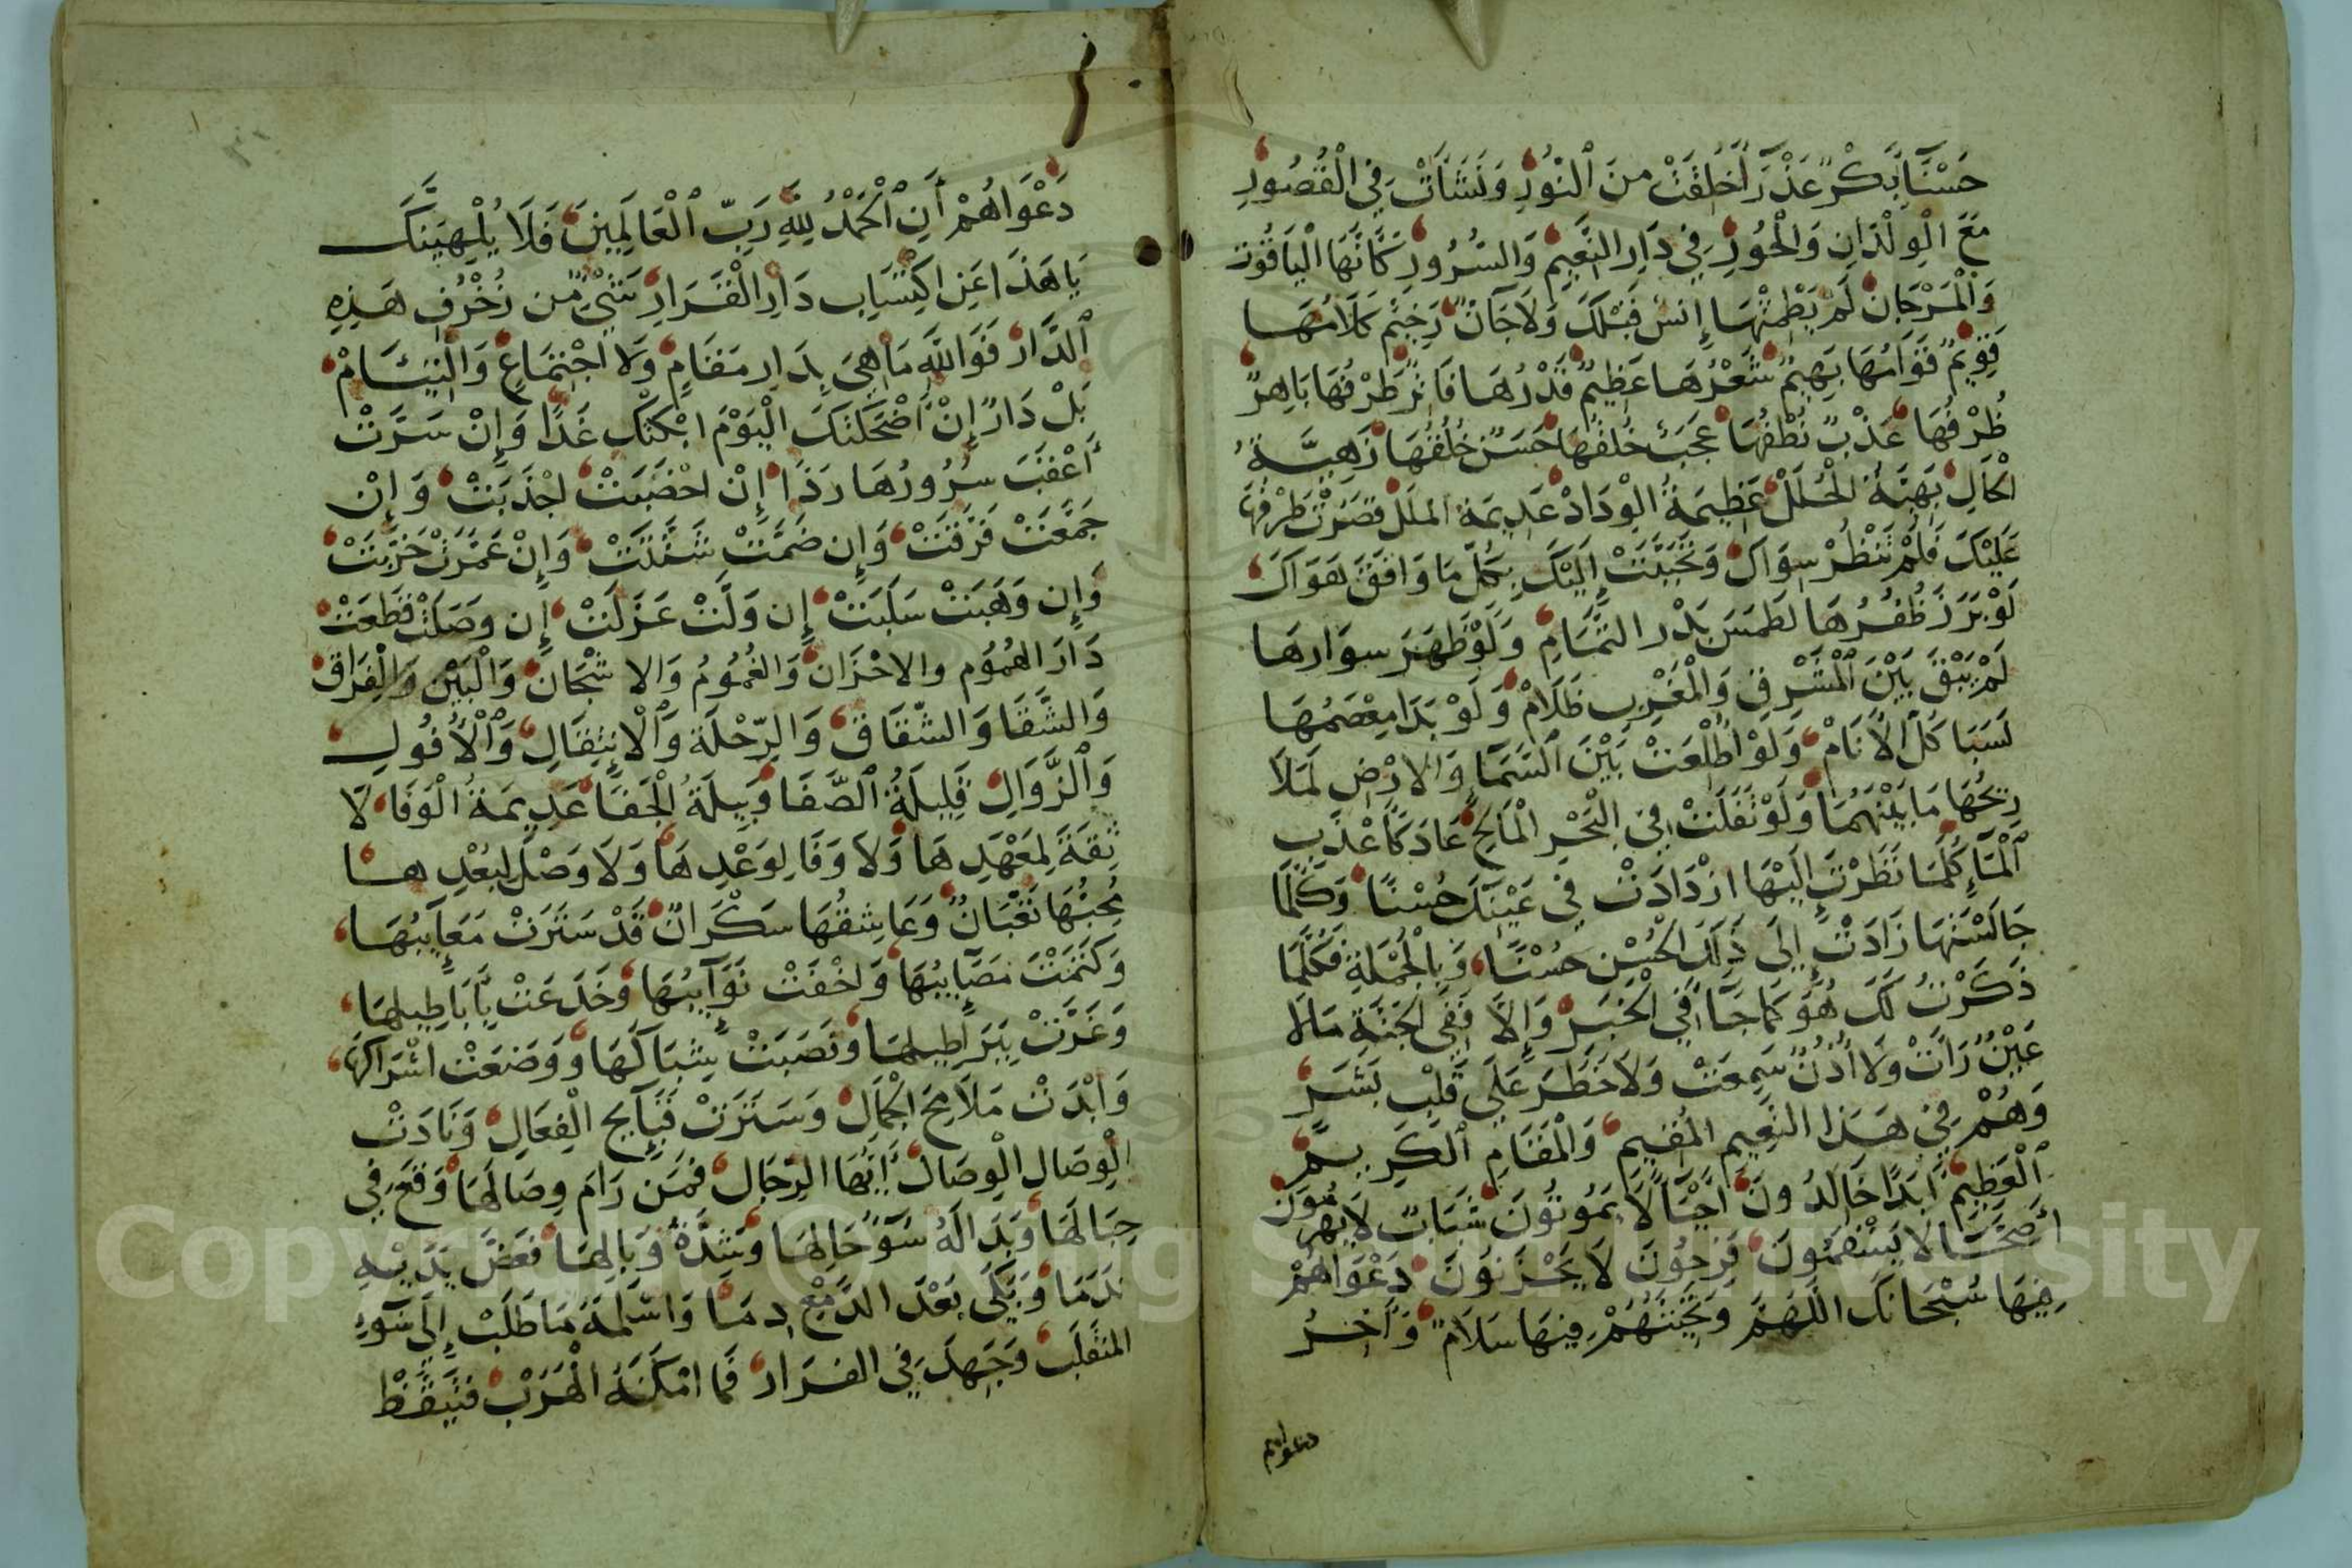 حَسْنَآءُ بِكْرٌ عَذْرَآءُ خُلِقَتْ مِنَ ٱلنُّورِ وَنَشَأَتْ فِي الْقُصُورِ
مَعَ الْوِلْدَانِ وَالْحُورِ فِي دَارِ النَّعِيمِ وَالسُّرُورِ كَأَنَّهَا الْيَاقُوتُ
وَالْمَرْجَانُ لَمْ يَطْمِثْهَا إِنْسٌ قَبْلَكَ وَلَا جَآنٌّ رَخِيمٌ كَلَامُهَا
قَوِيمٌ قَوَامُهَا بَهِيمٌ شَعْرُهَا عَظِيمٌ قَدْرُهَا فَاتِرٌ طَرْفُهَا بَاهِرٌ
ظُرْفُهَا عَذْبٌ نُطْقُهَا عَجَبٌ خَلْقُهَا حَسَنٌ خُلُقُهَا زَهِيَّةُ
الْحَالِ بَهِيَّةُ الْحُلَلِ عَظِيمَةُ الْوِدَادِ عَدِيمَةُ الْمَلَلِ قَصَرَتْ طَرْفَهَا
عَلَيْكَ فَلَمْ تَنْظُرْ سِوَاكَ وَتَحَبَّبَتْ إِلَيْكَ بِكُلِّ مَا وَافَقَ هَوَاكَ
لَوْ بَرَزَ ظُفُرُهَا لَطَمَسَ بَدْرَ التَّمَامِ وَلَوْ ظَهَرَ سِوَارُهَا
لَمْ يَبْقَ بَيْنَ ٱلْمَشْرِقِ وَالْمَغْرِبِ ظَلَامٌ وَلَوْ بَدَا مِعْصَمُهَا
لَسَبَا كُلَّ الْأَنَامِ وَلَوْ اطَّلَعَتْ بَيْنَ ٱلسَّمَآءِ وَالْأَرْضِ لَمَلَأَ
رِيحُهَا مَا بَيْنَهُمَا وَلَوْ تَفَلَتْ فِي الْبَحْرِ الْمَالِحِ عَادَ كَأَعْذَبِ
ٱلْمَآءِ كُلَّمَا نَظَرْتَ إِلَيْهَا ازْدَادَتْ فِي عَيْنِكَ حُسْنًا وَكُلَّمَا
جَالَسْتَهَا زَادَتْ إِلَى ذَلِكَ الْحُسْنِ حُسْنًا وَبِالْجُمْلَةِ فَكُلَّمَا
ذَكَرْتُ لَكَ هُوَ كَمَا جَآءَ فِي الْخَبَرِ وَإِلَّا فَفِي الْجَنَّةِ مَا لَا
عَيْنٌ رَأَتْ وَلَا أُذُنٌ سَمِعَتْ وَلَا خَطَرَ عَلَى قَلْبِ بَشَرٍ
وَهُمْ فِي هَذَا النَّعِيمِ الْمُقِيمِ وَالْمَقَامِ ٱلْكَرِيمِ
ٱلْعَظِيمِ أَبَدًا خَالِدُونَ أَحْيَاءٌ لَا يَمُوتُونَ شَبَابٌ لَا يَهْرَمُونَ
أَصِحَّآءُ لَا يَسْقَمُونَ فَرِحُونَ لَا يَحْزَنُونَ دَعْوَاهُمْ
فِيهَا سُبْحَانَكَ اللَّهُمَّ وَتَحِيَّتُهُمْ فِيهَا سَلَامٌ وَآخِرُ
دعواهم
دَعْوَاهُمْ أَنِ ٱلْحَمْدُ لِلَّهِ رَبِّ ٱلْعَالَمِينَ فَلَا يُلْهِيَنَّكَ
يَا هَذَا عَنِ اكْتِسَابِ دَارِ الْقَرَارِ شَيْءٌ مِن زُخْرُفِ هَذِهِ
ٱلدَّارِ فَوَاللَّهِ مَا هِيَ بِدَارِ مَقَامٍ وَلَا اجْتِمَاعٍ وَالْتِيَامْ
بَلْ دَارٌ إِنْ أَضْحَكَتْكَ الْيَوْمَ ابْكَتْكَ غَدًا وَإِنْ سَرَّتْ
أَعْقَبَ سُرُورُهَا رَدًا إِنْ اخْصَبَتْ اجْدَبَتْ وَإِنْ
جَمَّعَتْ فَرَّقَتْ وَإِن ضَمَّتْ شَتَّتَتْ وَإِنْ عَمَّرَتْ خَرَّبَتْ
وَإِن وَهَبَتْ سَلَبَتْ إِن وَلَّتْ عَزَلَتْ إِن وَصَلَتْ قَطَعَتْ
دَارُ الْهُمُومِ وَالاحْزَانِ وَالْغُمُومِ وَالاشْجَانِ وَالْبَيْنِ وَالْفِرَاقِ
وَالشَّقَا وَالشِّقَاقِ وَالرِّحْلَةِ وَٱلْانْتِقَالِ وَٱلْأُفُولِ
وَٱلزَّوَالِ قَلِيلَةُ ٱلصَّفَا وَبِيلَةُ الْجَفَا عَدِيمَةُ الْوَفَا لَا
ثِقَةَ لِمَعْهَدِهَا وَلَا وَفَا لِوَعْدِهَا وَلَا وَصْلَ لِبُعْدِهَا
مُحِبُّهَا تَعْبَانٌ وَعَاشِقُهَا سَكْرَانٌ قَدْ سَتَرَتْ مَعَآيِبَهَا
وَكَتَمَتْ مَصَآيِبَهَا وَاخْفَتْ نَوَآيِبَهَا وَخَدَعَتْ بِأَبَاطِيلِهَا
وَغَرَّتْ بِبَرَاطِيلِهَا وَنَصَبَتْ شِبَاكَهَا وَوَضَعَتْ اشْرَاكَهَا
وَابْدَتْ مَلَامِحَ الْجَمَالِ وَسَتَرَتْ قَبَآيِحَ الْفِعَالِ وَنَادَتْ
الْوِصَالَ الْوِصَالَ أَيُّهَا الرِّجَالُ فَمَن رَامَ وِصَالَهَا وَقَعَ فِي
حِبَالِهَا وَبَدَا لَهُ سُوٓءُ حَالِهَا وَشِدَّةُ وَبَالِهَا فَعَضَّ يَدَيْهِ
نَدَمًا وَبَكَى بَعْدَ الدَّمْعِ دِمَآءً وَاسْلَمَهُ مَا طَلَبَ إِلَى سُوٓءِ
الْمُنْقَلَبِ وَجَهِدَ فِي الْفِرَارِ فَمَا امْكَنَهُ الْهَرَبُ فَتَيَقَّظْ